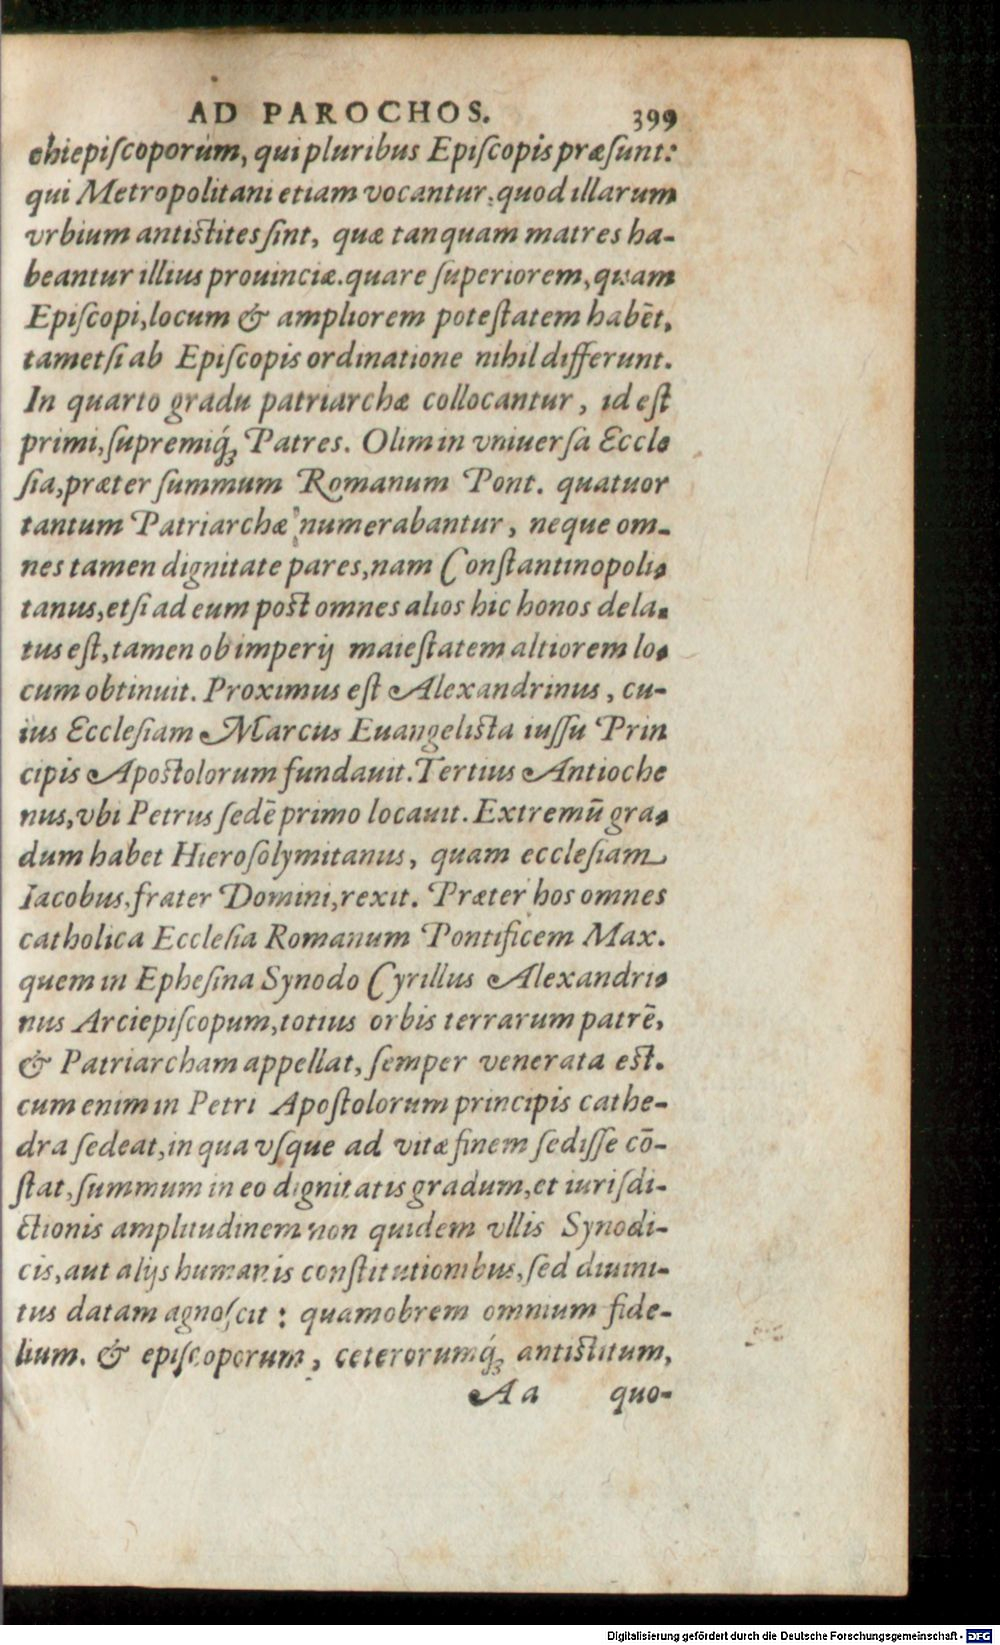 AD PAROCHOS. 399
chiepiſcoporum, qui pluribus Epiſcopis præſunt:
qui Metropolitani etiam vocantur, quod illarum
vrbium antiſtites ſint, quæ tanquam matres ha-
beantur illius prouinciæ. quare ſuperiorem, quam
Epiſcopi, locum & ampliorem poteſtatem habēt,
tametſi ab Epiſcopis ordinatione nihil differunt.
In quarto gradu patriarchæ collocantur, id eſt
primi, ſupremiq́ꝫ Patres. Olim in vniuerſa Eccle
ſia, præter ſummum Romanum Pont. quatuor
tantum Patriarchæ numerabantur, neque om-
nes tamen dignitate pares, nam Conſtantinopoli-
tanus, etſi ad eum poſt omnes alios hic honos dela-
tus eſt, tamen ob imperij maieſtatem altiorem lo-
cum obtinuit. Proximus eſt Alexandrinus, cu-
ius Eccleſiam Marcus Euangeliſta iuſſu Prin
cipis Apoſtolorum fundauit. Tertius Antioche
nus, vbi Petrus ſedē primo locauit. Extremū gra-
dum habet Hieroſolymitanus, quam eccleſiam
Iacobus, frater Domini, rexit. Præter hos omnes
catholica Eccleſia Romanum Pontificem Max.
quem in Epheſina Synodo Cyrillus Alexandri-
nus Arciepiſcopum, totius orbis terrarum patrē,
& Patriarcham appellat, ſemper venerata eſt.
cum enim in Petri Apoſtolorum principis cathe-
dra ſedeat, in qua vſque ad vitæ finem ſediſſe cō-
ſtat, ſummum in eo dignitatis gradum, et iuriſdi-
ctionis amplitudinem non quidem vllis Synodi-
cis, aut alijs humanis conſtitutionibus, ſed diuini-
tus datam agnoſcit: quamobrem omnium fide-
lium. & epiſcoporum, ceterorumq́ꝫ antiſtitum,
Aa quo-
Digitalisierung gefördert durch die Deutsche Forschungsgemeinschaft - DFG